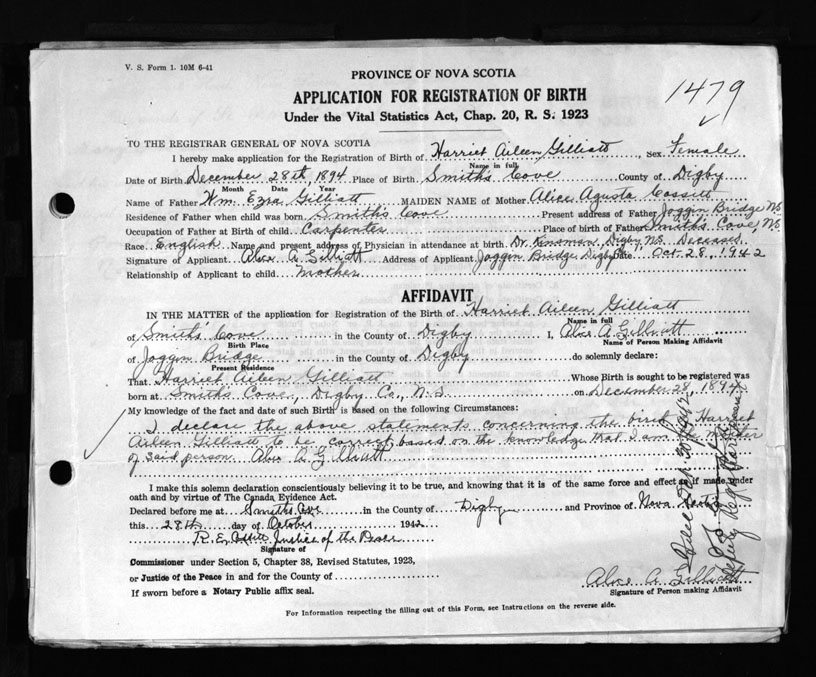 V. S. Form 1. 10M 6-41
PROVINCE OF NOVA SCOTIA
1479
APPLICATION FOR REGISTRATION OF BIRTH
Under the Vital Statistics Act, Chap. 20, R. S. 1923
TO THE REGISTRAR GENERAL OF NOVA SCOTIA
I hereby make application for the Registration of Birth of Harriet Aileen Gilliatt, Sex Female
Name in full
Date of Birth December 28th, 1894 Place of Birth Smith's Cove County of Digby
Month Date Year
Name of Father Wm. Ezra Gilliatt MAIDEN NAME of Mother Alice Agusta Cossitt
Residence of Father when child was born Smith's Cove Present address of Father Joggin Bridge NS
Occupation of Father at Birth of child Carpenter Place of birth of Father Smiths Cove, NS
Race English Name and present address of Physician in attendance at birth Dr. Kinsman, Digby NS. Deceased
Signature of Applicant Alice A Gilliatt Address of Applicant Joggin Bridge, Digby Date Oct. 28, 1942
Relationship of Applicant to child Mother
AFFIDAVIT
IN THE MATTER of the application for Registration of the Birth of Harriet Aileen Gilliatt
Name in full
of Smith's Cove in the County of Digby I, Alice A Gilliatt
Birth Place Name of Person Making Affidavit
of Joggin Bridge in the County of Digby do solemnly declare:
Present Residence
That Harriet Aileen Gilliatt Whose Birth is sought to be registered was
born at Smiths Cove, Digby Co., N.S on December 28, 1894
My knowledge of the fact and date of such Birth is based on the following Circumstances:
I declare the above statements concerning the birth of Harriet
Aileen Gilliatt to be correct based on the knowledge that I am the Mother
of said person Alice A Gilliatt
I make this solemn declaration conscientiously believing it to be true, and knowing that it is of the same force and effect as if made under
oath and by virtue of The Canada Evidence Act.
Declared before me at Smiths Cove in the County of Digby and Province of Nova Scotia
this 28th day of October 1942
R. E. Cossitt Justice of the Peace
Signature of
Commissioner under Section 5, Chapter 38, Revised Statutes, 1923,
or Justice of the Peace in and for the County of
Alice A Gilliatt
If sworn before a Notary Public affix seal.
Signature of Person making Affidavit
For Information respecting the filling out of this Form, see Instructions on the reverse side.